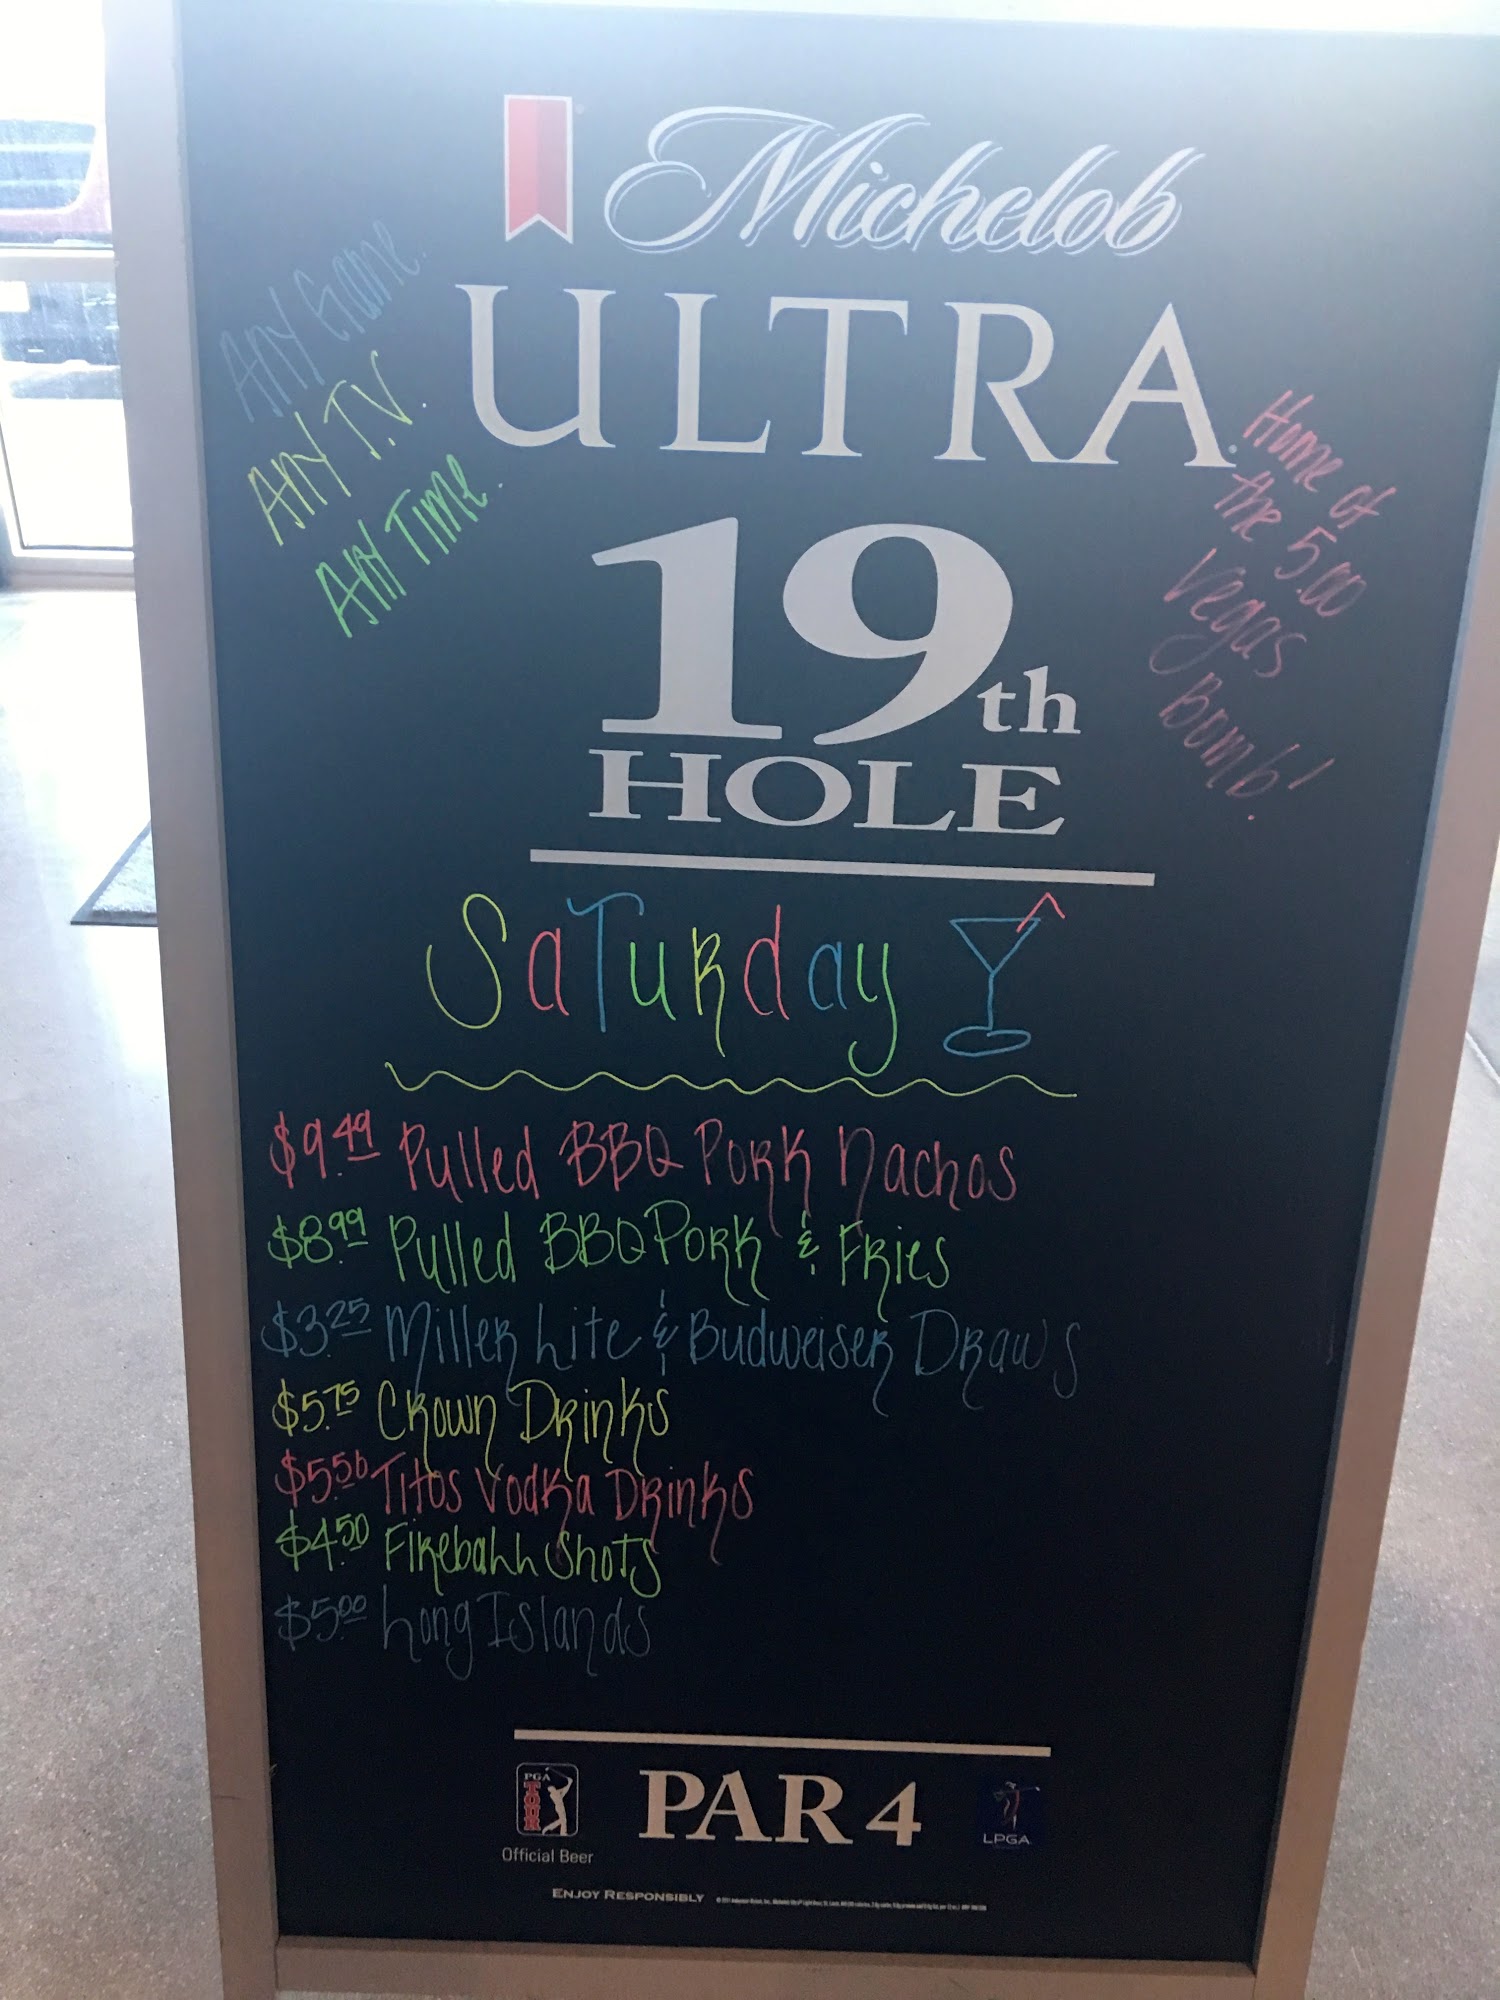 Michelob
ULTRA
Any Game.
Any T.V.
Any Time.
Home of
the 5.00
Vegas
Bomb!
19th
HOLE
Saturday
$9.49 Pulled BBQ Pork Nachos
$8.99 Pulled BBQ Pork & Fries
$3.25 Miller Lite & Budweiser Draws
$5.75 Crown Drinks
$5.50 Titos Vodka Drinks
$4.50 Fireball Shots
$5.00 Long Islands
PGA
TOUR
Official Beer
PAR 4
LPGA
ENJOY RESPONSIBLY